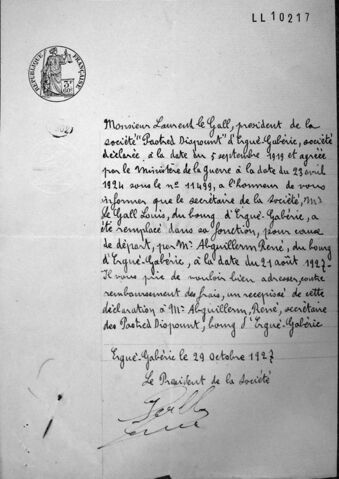 LL 10217
RÉPUBLIQUE FRANÇAISE
Monsieur Laurent le Gall, président de la
société "Paotred Dispount" d'Ergué-Gabéric, société
déclarée à la date du 5 septembre 1919 et agréée
par le Ministère de la Guerre à la date du 23 avril
1924 sous le n° 11499, a l'honneur de vous
informer que le secrétaire de la société, Mr
le Gall Louis, du bourg d'Ergué-Gabéric, a
été remplacé dans sa fonction, pour cause
de départ, par Mr Abguillerm René, du bourg
d'Ergué-Gabéric, à la date du 21 août 1927.
Il vous prie de vouloir bien adresser, contre
remboursement des frais, un recepissé de cette
déclaration à Mr Abguillerm, René, secrétaire
des Paotred Dispount, bourg d'Ergué-Gabéric
Ergué-Gabéric le 29 Octobre 1927
Le Président de la Société